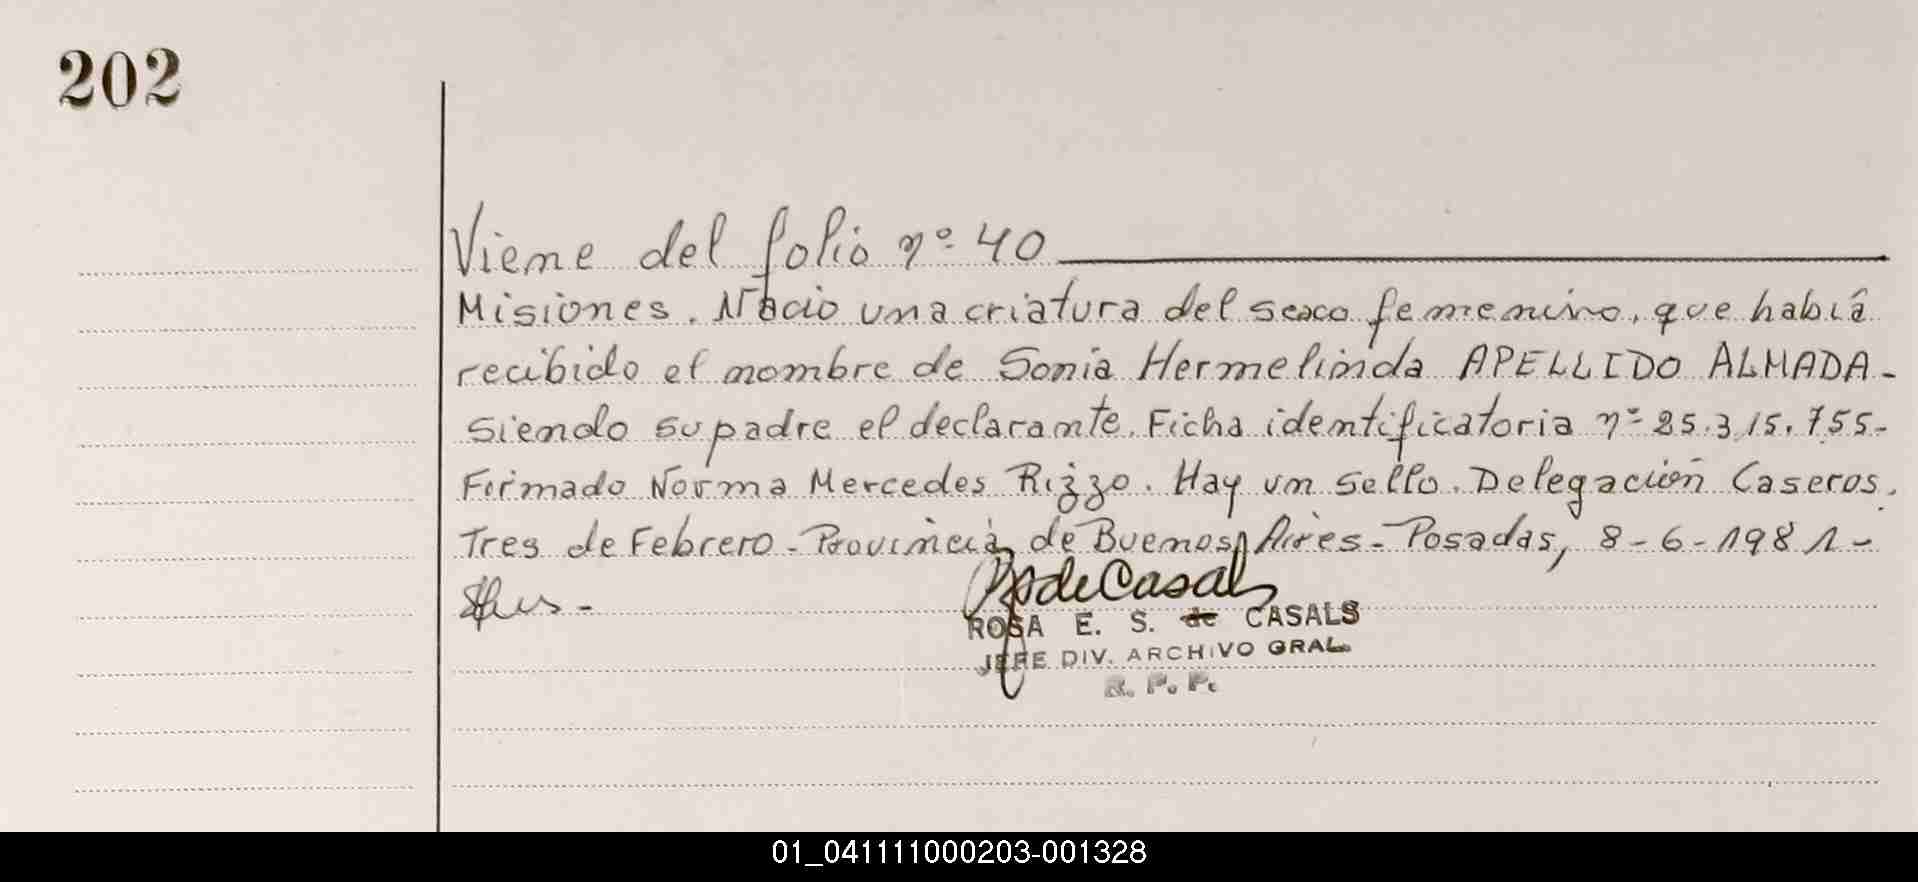 202
Viene del folio nº 40
Misiones. Nacio una criatura del sexo femenino, que habiá
recibido el nombre de Sonia Hermelinda APELLIDO ALMADA-
Siendo su padre el declarante. Ficha identificatoria nº 25.315.755-
Firmado Norma Mercedes Rizzo. Hay un sello. Delegación Caseros.
Tres de Febrero - Provincia de Buenos Aires - Posadas, 8-6-1981-
de Casals
ROSA E. S. de CASALS
JEFE DIV. ARCHIVO GRAL.
R. P. P.
01_041111000203-001328